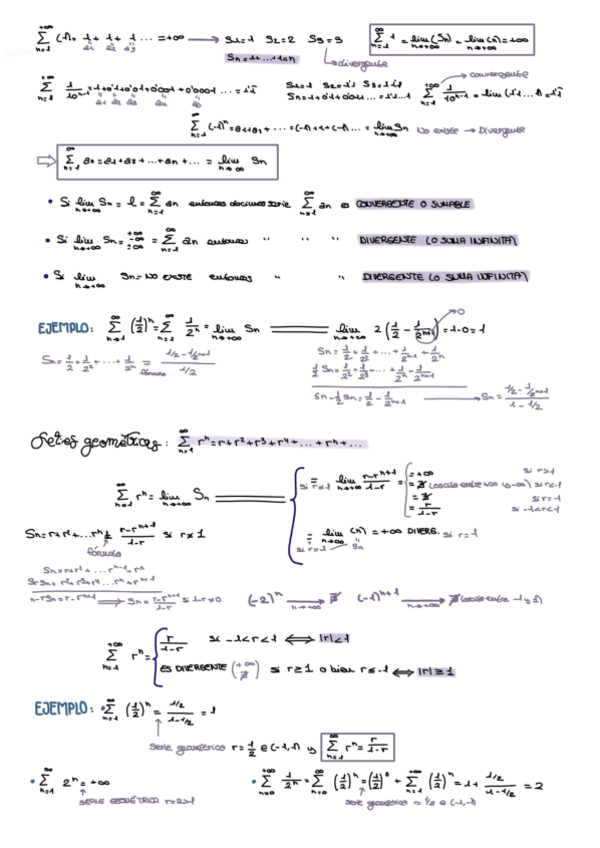 ∑_{n=1}^{+∞} 1 = 1 + 1 + 1 ... = +∞ → S1=1 S2=2 S3=3 ∑_{n=1}^{∞} 1 = lim_{n→+∞} (Sn) = lim_{n→+∞} (n) = +∞
a1 a2 a3 Sn=1+...+1=n divergente
∑_{n=1}^{∞} 1/10^{n-1} = 1+0'1+0'01+0'001+0'0001 ... = 1'1 S1=1 S2=1'1 S3=1'11 ∑_{n=1}^{+∞} 1/10^{n-1} = lim (1'1...1) = 1'1 convergente
Sn=1+0'1+0'01... = 1'11...1
∑_{n=1}^{∞} (-1)^n = a1+a2+... = (-1)+1+(-1)... = lim_{n→+∞} Sn No existe → Divergente
⇒ ∑_{n=1}^{∞} an = a1 + a2 + ... + an + ... = lim_{n→∞} Sn
• Si lim_{n→+∞} Sn = l = ∑_{n=1}^{∞} an entonces decimos serie ∑_{n=1}^{∞} an es CONVERGENTE O SUMABLE
• Si lim_{n→+∞} Sn = +∞ -∞ ±∞ = ∑_{n=1}^{∞} an entonces " " " DIVERGENTE (O SUMA INFINITA)
• Si lim_{n→+∞} Sn = NO EXISTE entonces " " DIVERGENTE (O SUMA INFINITA)
EJEMPLO: ∑_{n=1}^{∞} (1/2)^n = ∑_{n=1}^{∞} 1/2^n = lim_{n→+∞} Sn = lim_{n→+∞} 2 (1/2 - 1/2^{n+1}) = 1-0 = 1 → 0
Sn = 1/2 + 1/2² + ... + 1/2^n = (1/2 - 1/2^{n+1}) / (1/2) fórmula
Sn = 1/2 + 1/2² + ... + 1/2^{n-1} + 1/2^n
1/2 Sn = 1/2² + 1/2³ + ... + 1/2^n - 1/2^{n+1}
Sn - 1/2 Sn = 1/2 - 1/2^{n+1} → Sn = (1/2 - 1/2^{n+1}) / (1 - 1/2)
Series geométricas: ∑_{n=1}^{∞} r^n = r+r²+r³+r⁴+...+r^n+...
∑_{n=1}^{∞} r^n = lim_{n→+∞} Sn
= si r≠1 lim_{n→+∞} (r-r^{n+1})/(1-r) =
= +∞ si r>1
= ∄ (oscila entre +∞ y -∞) si r<-1
= ∄ si r=-1
= r/(1-r) si -1<r<1
= si r=1 lim_{n→+∞} (n) = +∞ DIVERG. si r=1
Sn
Sn=r+r²+...r^n = (r-r^{n+1})/(1-r) si r≠1
fórmula
Sn=r+r²+...r^{n-1}+r^n
Sn-rSn=r-r^{n+1} ⇒ Sn = (r-r^{n+1})/(1-r) si 1-r≠0 (-2)^n →_{n→+∞} ∄ (-1)^{n+1} →_{n→+∞} ∄ (oscila entre -1 y 1)
∑_{n=1}^{+∞} r^n =
r/(1-r) si -1<r<1 ⟺ |r|<1
ES DIVERGENTE (+∞ ∄) si r≥1 o bien r≤-1 ⟺ |r|≥1
EJEMPLO: • ∑_{n=1}^{∞} (1/2)^n = (1/2)/(1-1/2) = 1
serie geométrica r=1/2 ∈ (-1,1) y ∑_{n=1}^{∞} r^n = r/(1-r)
• ∑_{n=1}^{∞} 2^n = +∞ • ∑_{n=0}^{+∞} 1/2^n = ∑_{n=0}^{∞} (1/2)^n = (1/2)^0 + ∑_{n=1}^{+∞} (1/2)^n = 1 + (1/2)/(1-1/2) = 2
SERIE GEOMÉTRICA r=2>1 serie geométrica r=1/2 ∈ (-1,1)